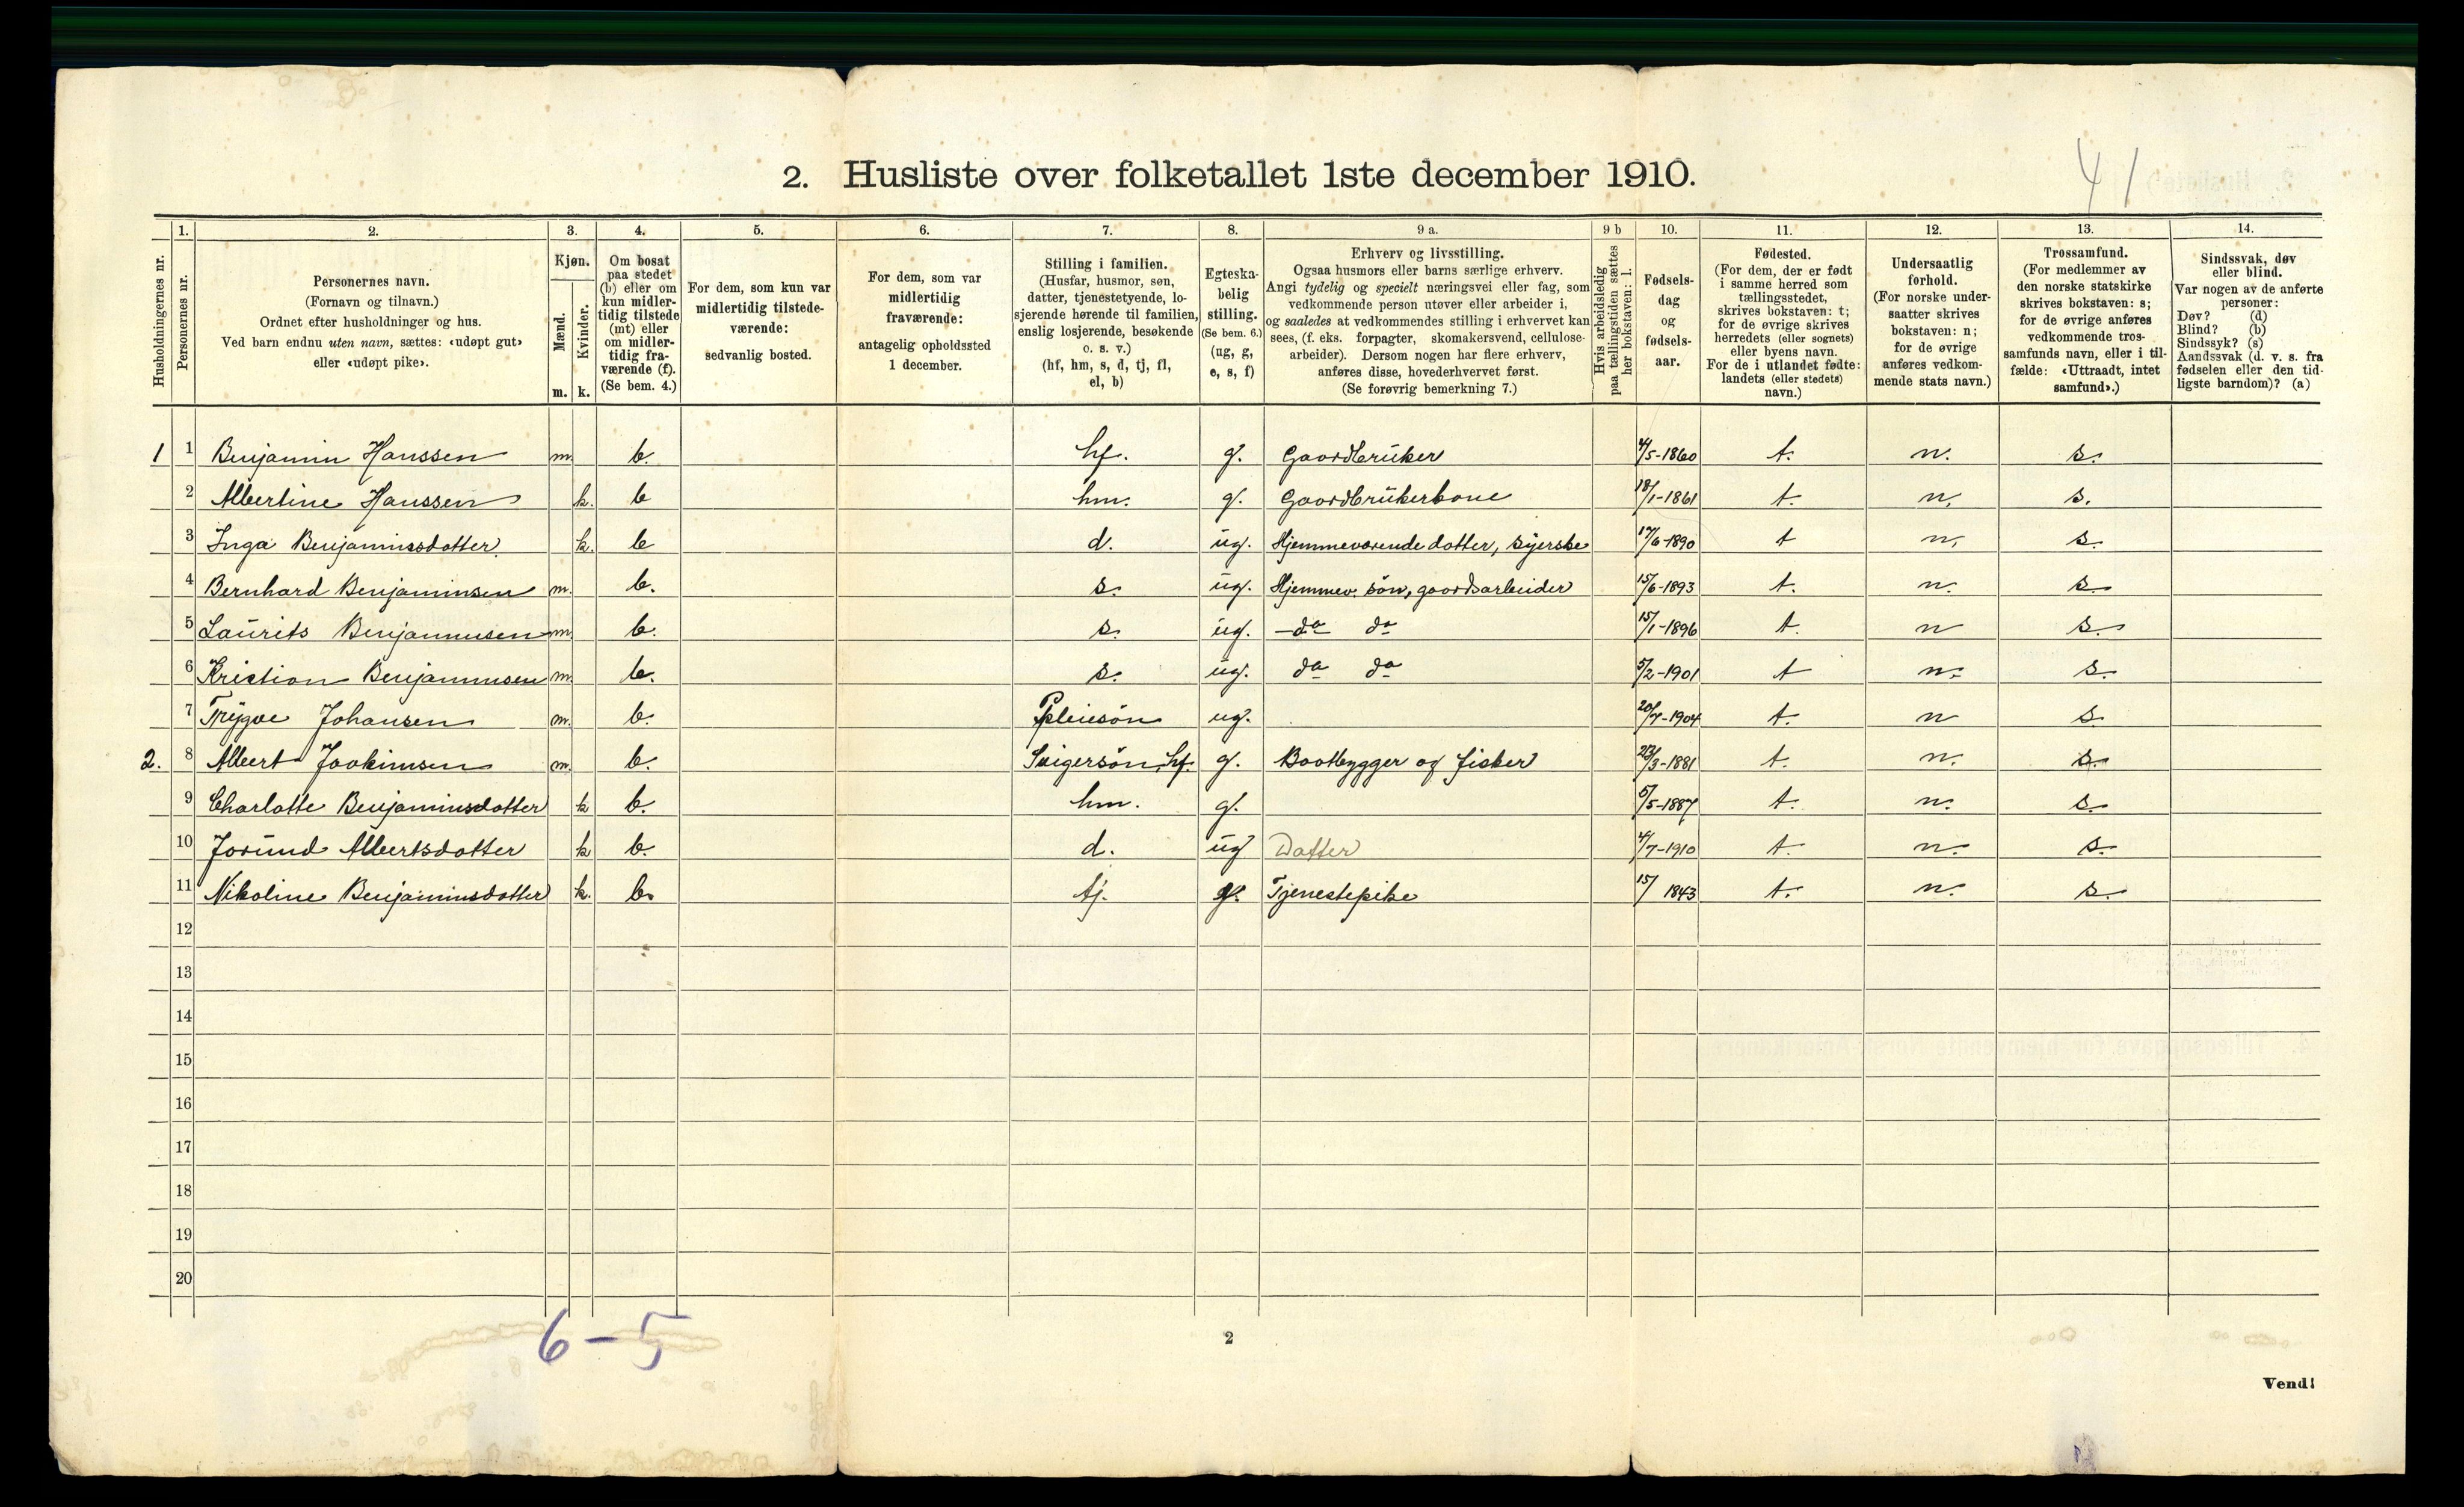 41
2. Husliste over folketallet 1ste december 1910.
1. 2. 3. 4. 5. 6. 7. 8. 9 a. 9 b 10. 11. 12. 13. 14.
Husholdningernes nr.
Personernes nr.
Personernes navn.
(Fornavn og tilnavn.)
Ordnet efter husholdninger og hus.
Ved barn endnu uten navn, sættes: «udøpt gut»
eller «udøpt pike».
Kjøn.
Mænd.
Kvinder.
m. k.
Om bosat
paa stedet
(b) eller om
kun midler-
tidig tilstede
(mt) eller
om midler-
tidig fra-
værende (f).
(Se bem. 4.)
For dem, som kun var
midlertidig tilstede-
værende:
sedvanlig bosted.
For dem, som var
midlertidig
fraværende:
antagelig opholdssted
1 december.
Stilling i familien.
(Husfar, husmor, søn,
datter, tjenestetyende, lo-
sjerende hørende til familien,
enslig losjerende, besøkende
o. s. v.)
(hf, hm, s, d, tj, fl,
el, b)
Egteska-
belig
stilling.
(Se bem. 6.)
(ug, g,
e, s, f)
Erhverv og livsstilling.
Ogsaa husmors eller barns særlige erhverv.
Angi tydelig og specielt næringsvei eller fag, som
vedkommende person utøver eller arbeider i,
og saaledes at vedkommendes stilling i erhvervet kan
sees, (f. eks. forpagter, skomakersvend, cellulose-
arbeider). Dersom nogen har flere erhverv,
anføres disse, hovederhvervet først.
(Se forøvrig bemerkning 7.)
Hvis arbeidsledig
paa tællingstiden sættes
her bokstaven: l.
Fødsels-
dag
og
fødsels-
aar.
Fødested.
(For dem, der er født
i samme herred som
tællingsstedet,
skrives bokstaven: t;
for de øvrige skrives
herredets (eller sognets)
eller byens navn.
For de i utlandet fødte:
landets (eller stedets)
navn.)
Undersaatlig
forhold.
(For norske under-
saatter skrives
bokstaven: n;
for de øvrige
anføres vedkom-
mende stats navn.)
Trossamfund.
(For medlemmer av
den norske statskirke
skrives bokstaven: s;
for de øvrige anføres
vedkommende tros-
samfunds navn, eller i til-
fælde: «Uttraadt, intet
samfund».)
Sindssvak, døv
eller blind.
Var nogen av de anførte
personer:
Døv? (d)
Blind? (b)
Sindssyk? (s)
Aandssvak (d. v. s. fra
fødselen eller den tid-
ligste barndom)? (a)
1 1 Benjamin Hanssen m. b. hf. g. Gaardbruker 4/5-1860 t. n. s.
2 Albertine Hanssen k. b hm. g. Gaardbrukerkone 18/1-1861 t. n. s.
3 Inga Benjaminsdotter k. b d. ug. Hjemmeværende dotter, syerske 17/6-1890 t n. s.
4 Bernhard Benjaminsen m. b. s. ug. Hjemmev. søn, gaardsarbeider 15/6-1893 t. n. s.
5 Laurits Benjaminsen m. b. s. ug. - do do 15/1-1896 t. n s.
6 Kristian Benjaminsen m. b. s. ug. do do 5/2-1901 t n. s.
7 Trygve Johansen m. b. Pleiesøn ug. 20/7-1904 t. n s.
2. 8 Albert Joakimsen m. b. Svigersøn, hf. g. Baatbygger og fisker 23/3-1881 t. n. s.
9 Charlotte Benjaminsdotter k b. hm. g. 5/5-1887 t. n. s.
10 Jorund Albertsdotter k b. d. ug Datter 4/7-1910 t. n. s.
11 Nikoline Benjaminsdotter k. b. tj. Tjenestepike 15/ 1843 t. n. s.
12
13
14
15
16
17
18
19
20
6-5
2
Vend!